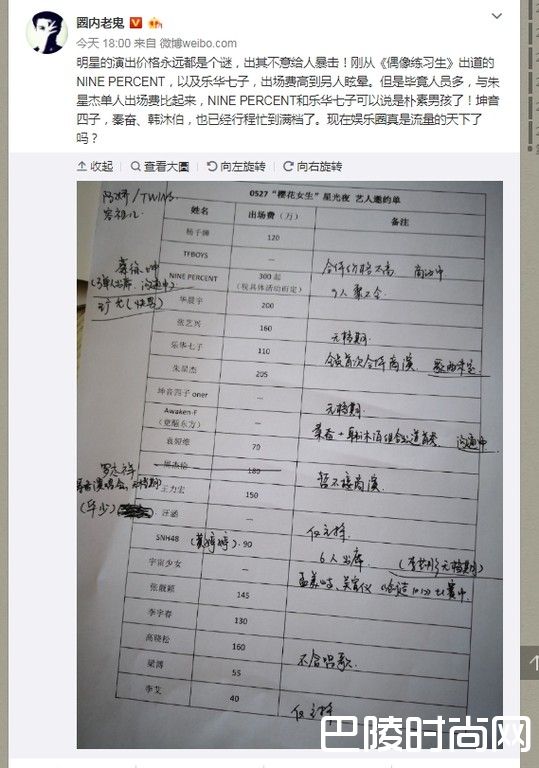 圆内老鬼
今天 18:00 来自 微博weibo.com
明星的演出价格永远都是个谜，出其不意给人暴击！刚从《偶像练习生》出道的
NINE PERCENT，以及乐华七子，出场费高到另人眩晕。但是毕竟人员多，与朱
星杰单人出场费比起来，NINE PERCENT和乐华七子可以说是朴素男孩了！坤音
四子，秦奋、韩沐伯，也已经行程忙到满档了。现在娱乐圆真是流量的天下了
吗？
收起 查看大圖 向左旋转 向右旋转
0527“樱花女生”星光夜 艺人邀约单
/TWINS
容祖儿
姓名 出场费（万） 备注
120
TFBOYS — 合作价格不高 商洽中
蔡徐坤
NINE PERCENT 300 起
（视具体活动而定） 9人
华晨宇 200
张艺兴 160 无档期.
乐华七子 110
朱星杰 205
坤音四子 oner — 无档期.
Awaken-F
（觉醒东方） — 秦奋+韩沐伯组合出道首秀 沟通中
袁娅维 70
周杰伦 180 暂不接商演.
罗志祥
王力宏 150
汪涵 — 仅主持
SNH48（黄婷婷） 90 6人出席
宇宙少女 — 孟美岐、吴宣仪
张靓颖 145
李宇春 130
高晓松 160 不含唱歌.
梁博 55
李艾 40 仅主持
巴陵时尚网